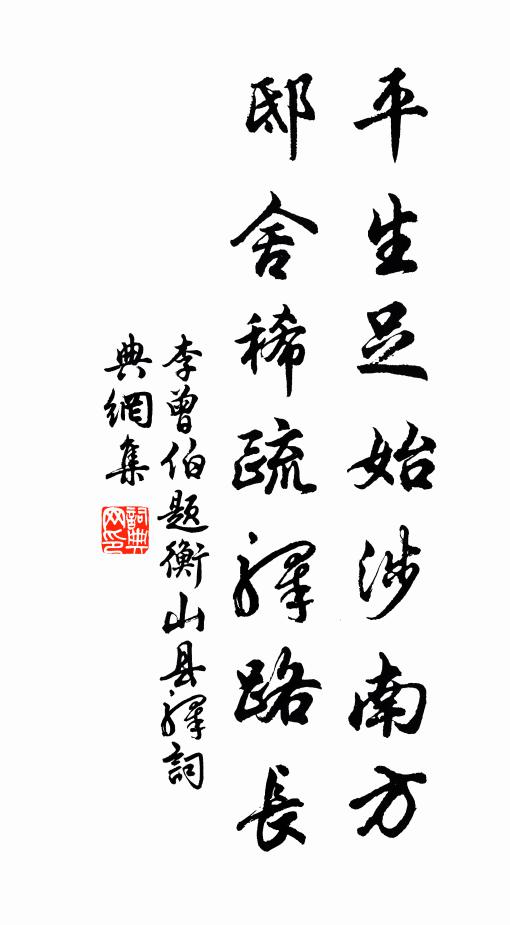 平生足始涉南方
邸舍稀疏驛路長
李曾伯題衡山县驛詞
典網集
詞典網印